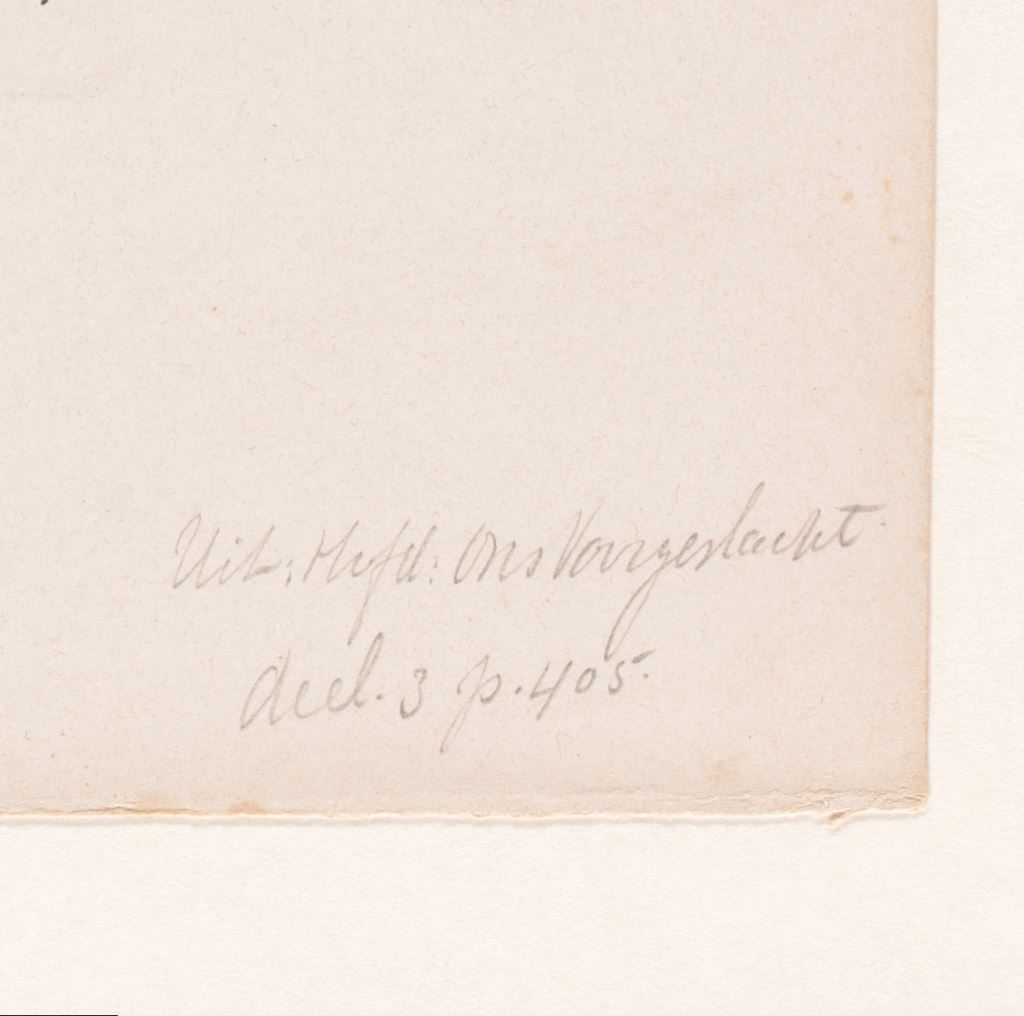 Uit: Hofd: Ons Voorgeslacht
deel. 3 p. 405.